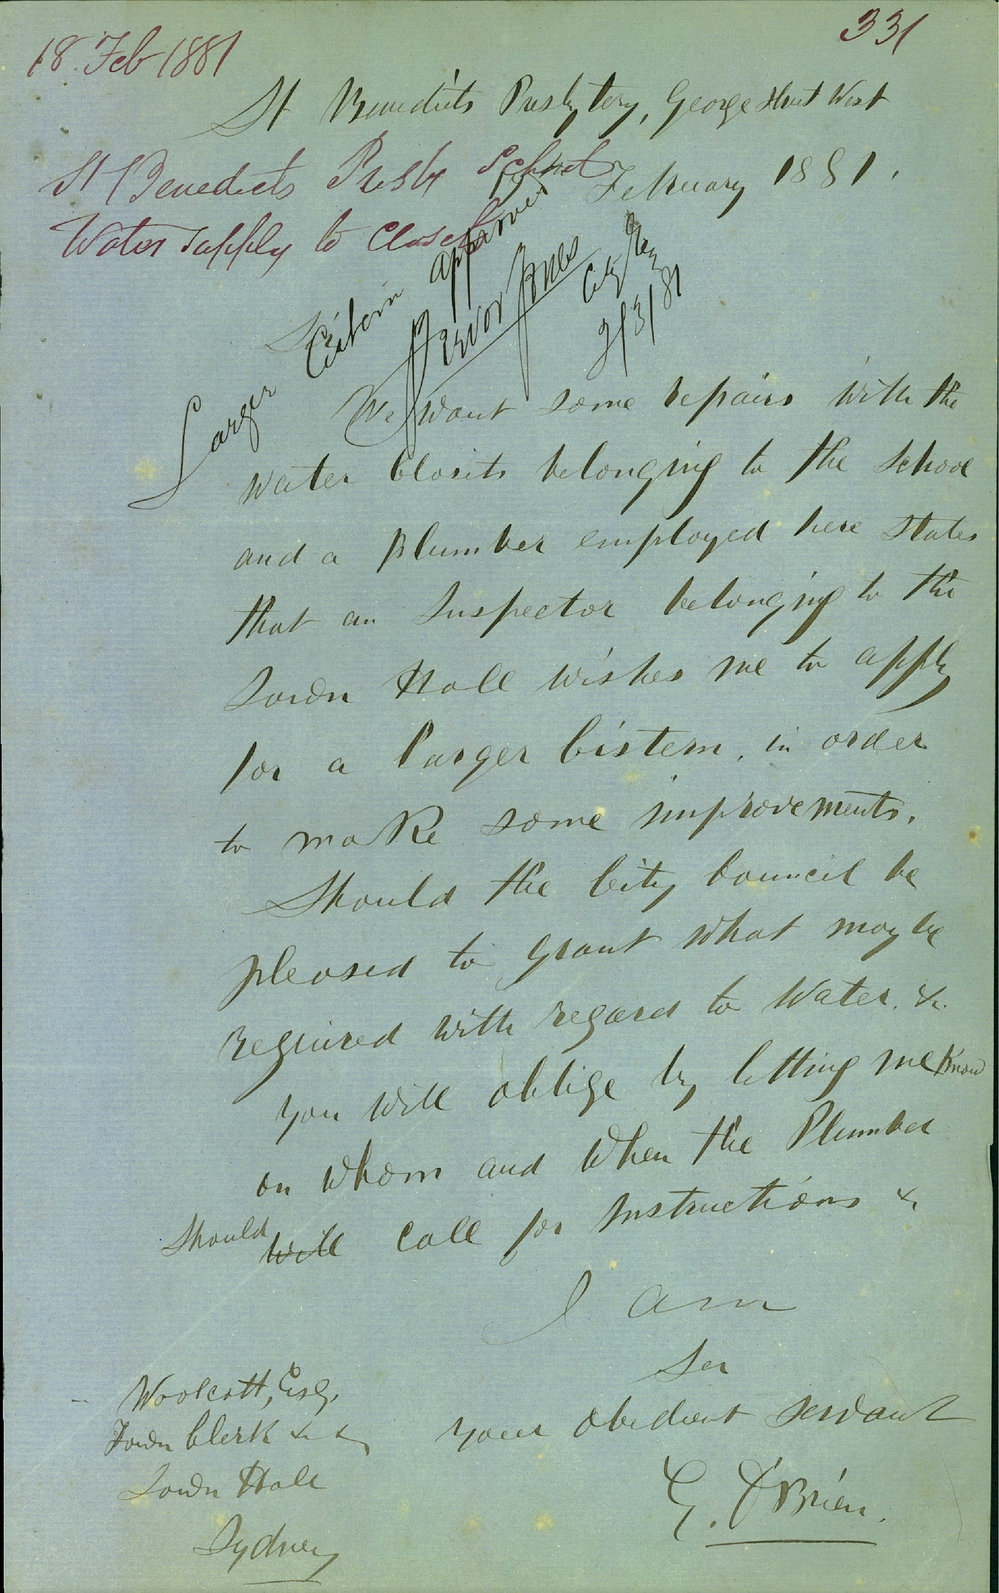 331
18 Feb 1881
St Benedicts Presbytery, George Street West
February 1881.
St Benedicts Presby School
Water supply to Closets
Larger Cistern approved
Trevor Jones
City Eng
2/3/81
Sir
We want some repairs with the
water Closits belonging to the School
and a plumber employed here states
that an Inspector belonging to the
Town Hall wishes me to apply
for a larger Cistern, in order
to make some improvements.
Should the City Council be
pleased to grant what may be
required with regard to Water, &c.
you will oblige by letting me know
on whom and when the Plumber
should will call for Instructions &c
I am
Sir
your obedient servant
G. O'Brien.
Woolcott, Esq,
Town Clerk &c &c
Town Hall
Sydney